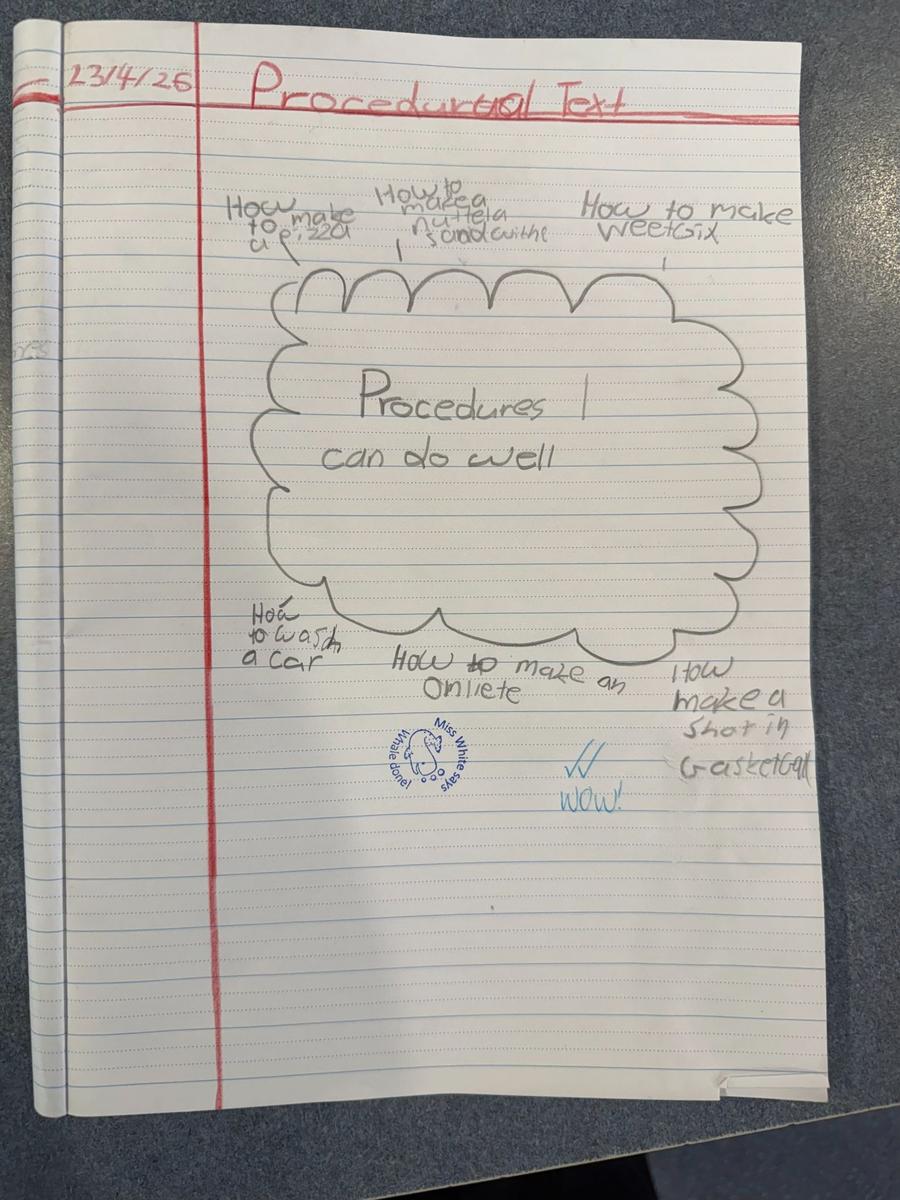 23/4/26
Procedurual Text
How
to make
a pizza
How to
make a
nuttela
sandwithe
How to make
weetbix
Procedures I
can do well
How
to wash
a car
How to make an
Omlete
How
make a
shot in
basketball
Miss White says
Whale done!
wow!